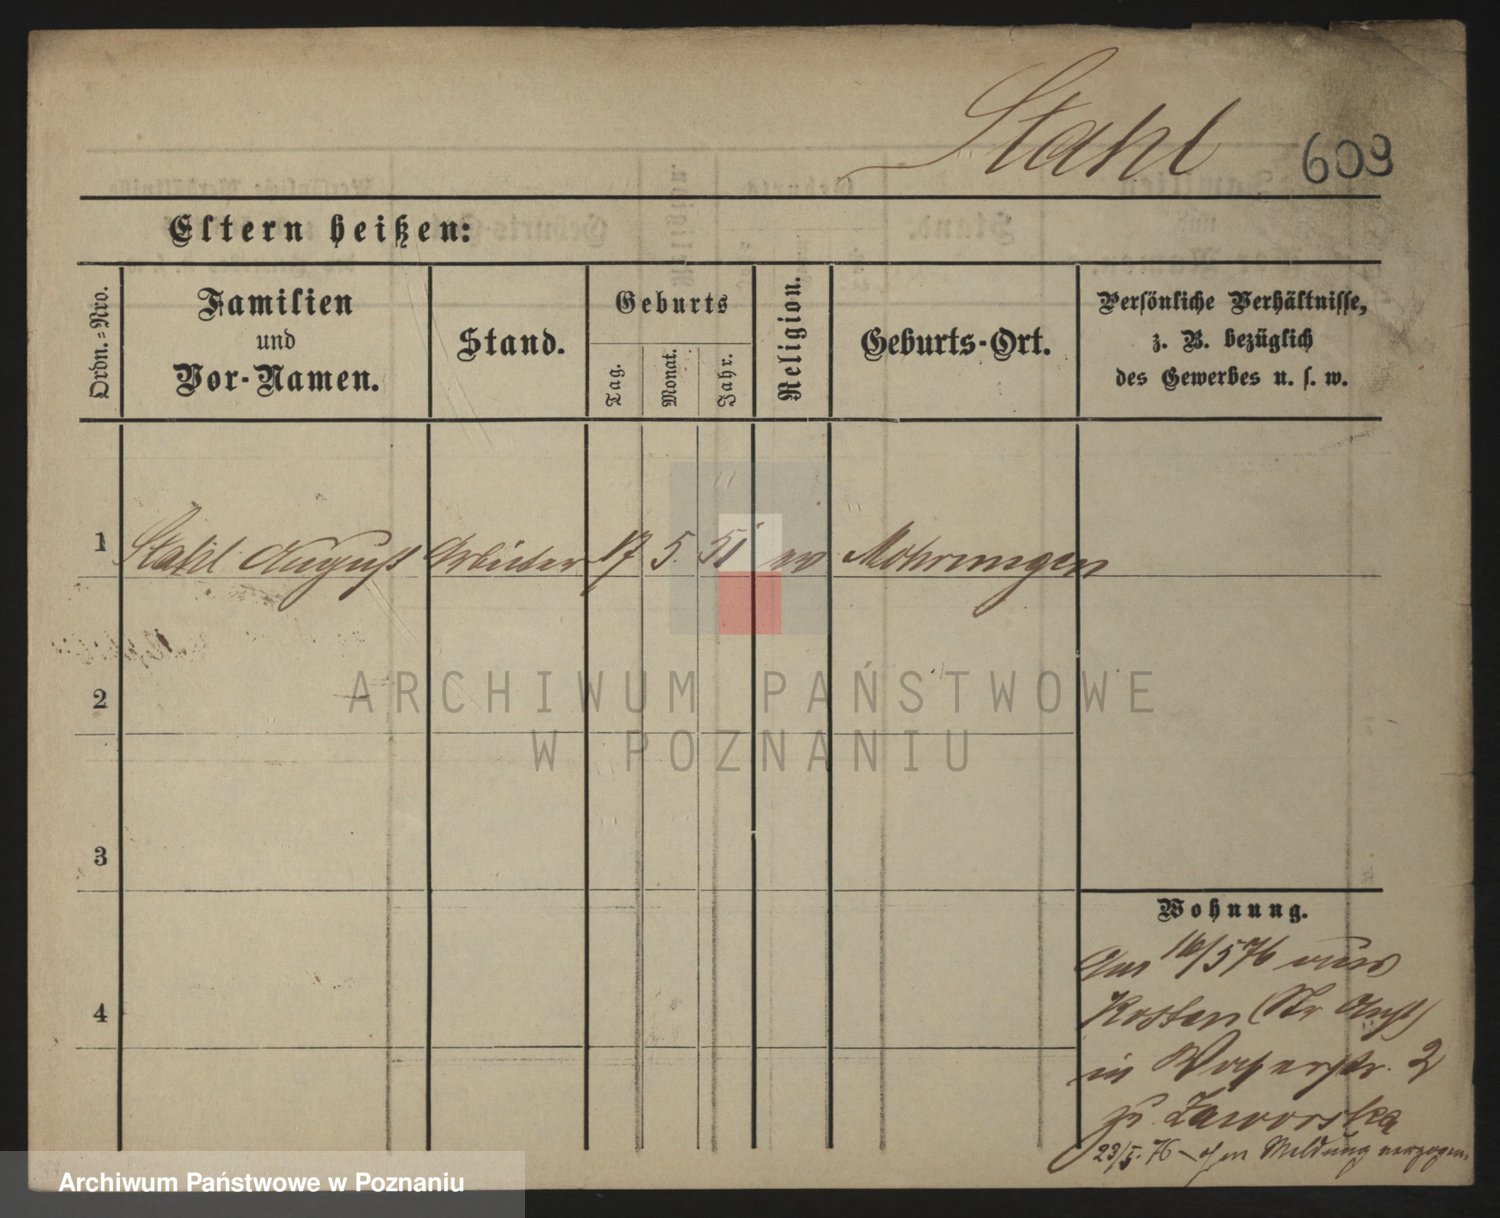 Stahl 609
Eltern heißen:
Ordn.-Nro.
Familien
und
Vor-Namen.
Stand.
Geburts
Tag.
Monat.
Jahr.
Religion.
Geburts-Ort.
Persönliche Verhältnisse,
z. B. bezüglich
des Gewerbes u. s. w.
1 Stahl August Arbeiter 17 5. 51 ev Mohrungen
2
3
4
Wohnung.
16/5 76 aus
Kosten (Kr
in Wasserstr. 2
zu Zaworska
23/5. 76 – ohne Meldung verzogen.
ARCHIWUM PAŃSTWOWE
W POZNANIU
Archiwum Państwowe w Poznaniu